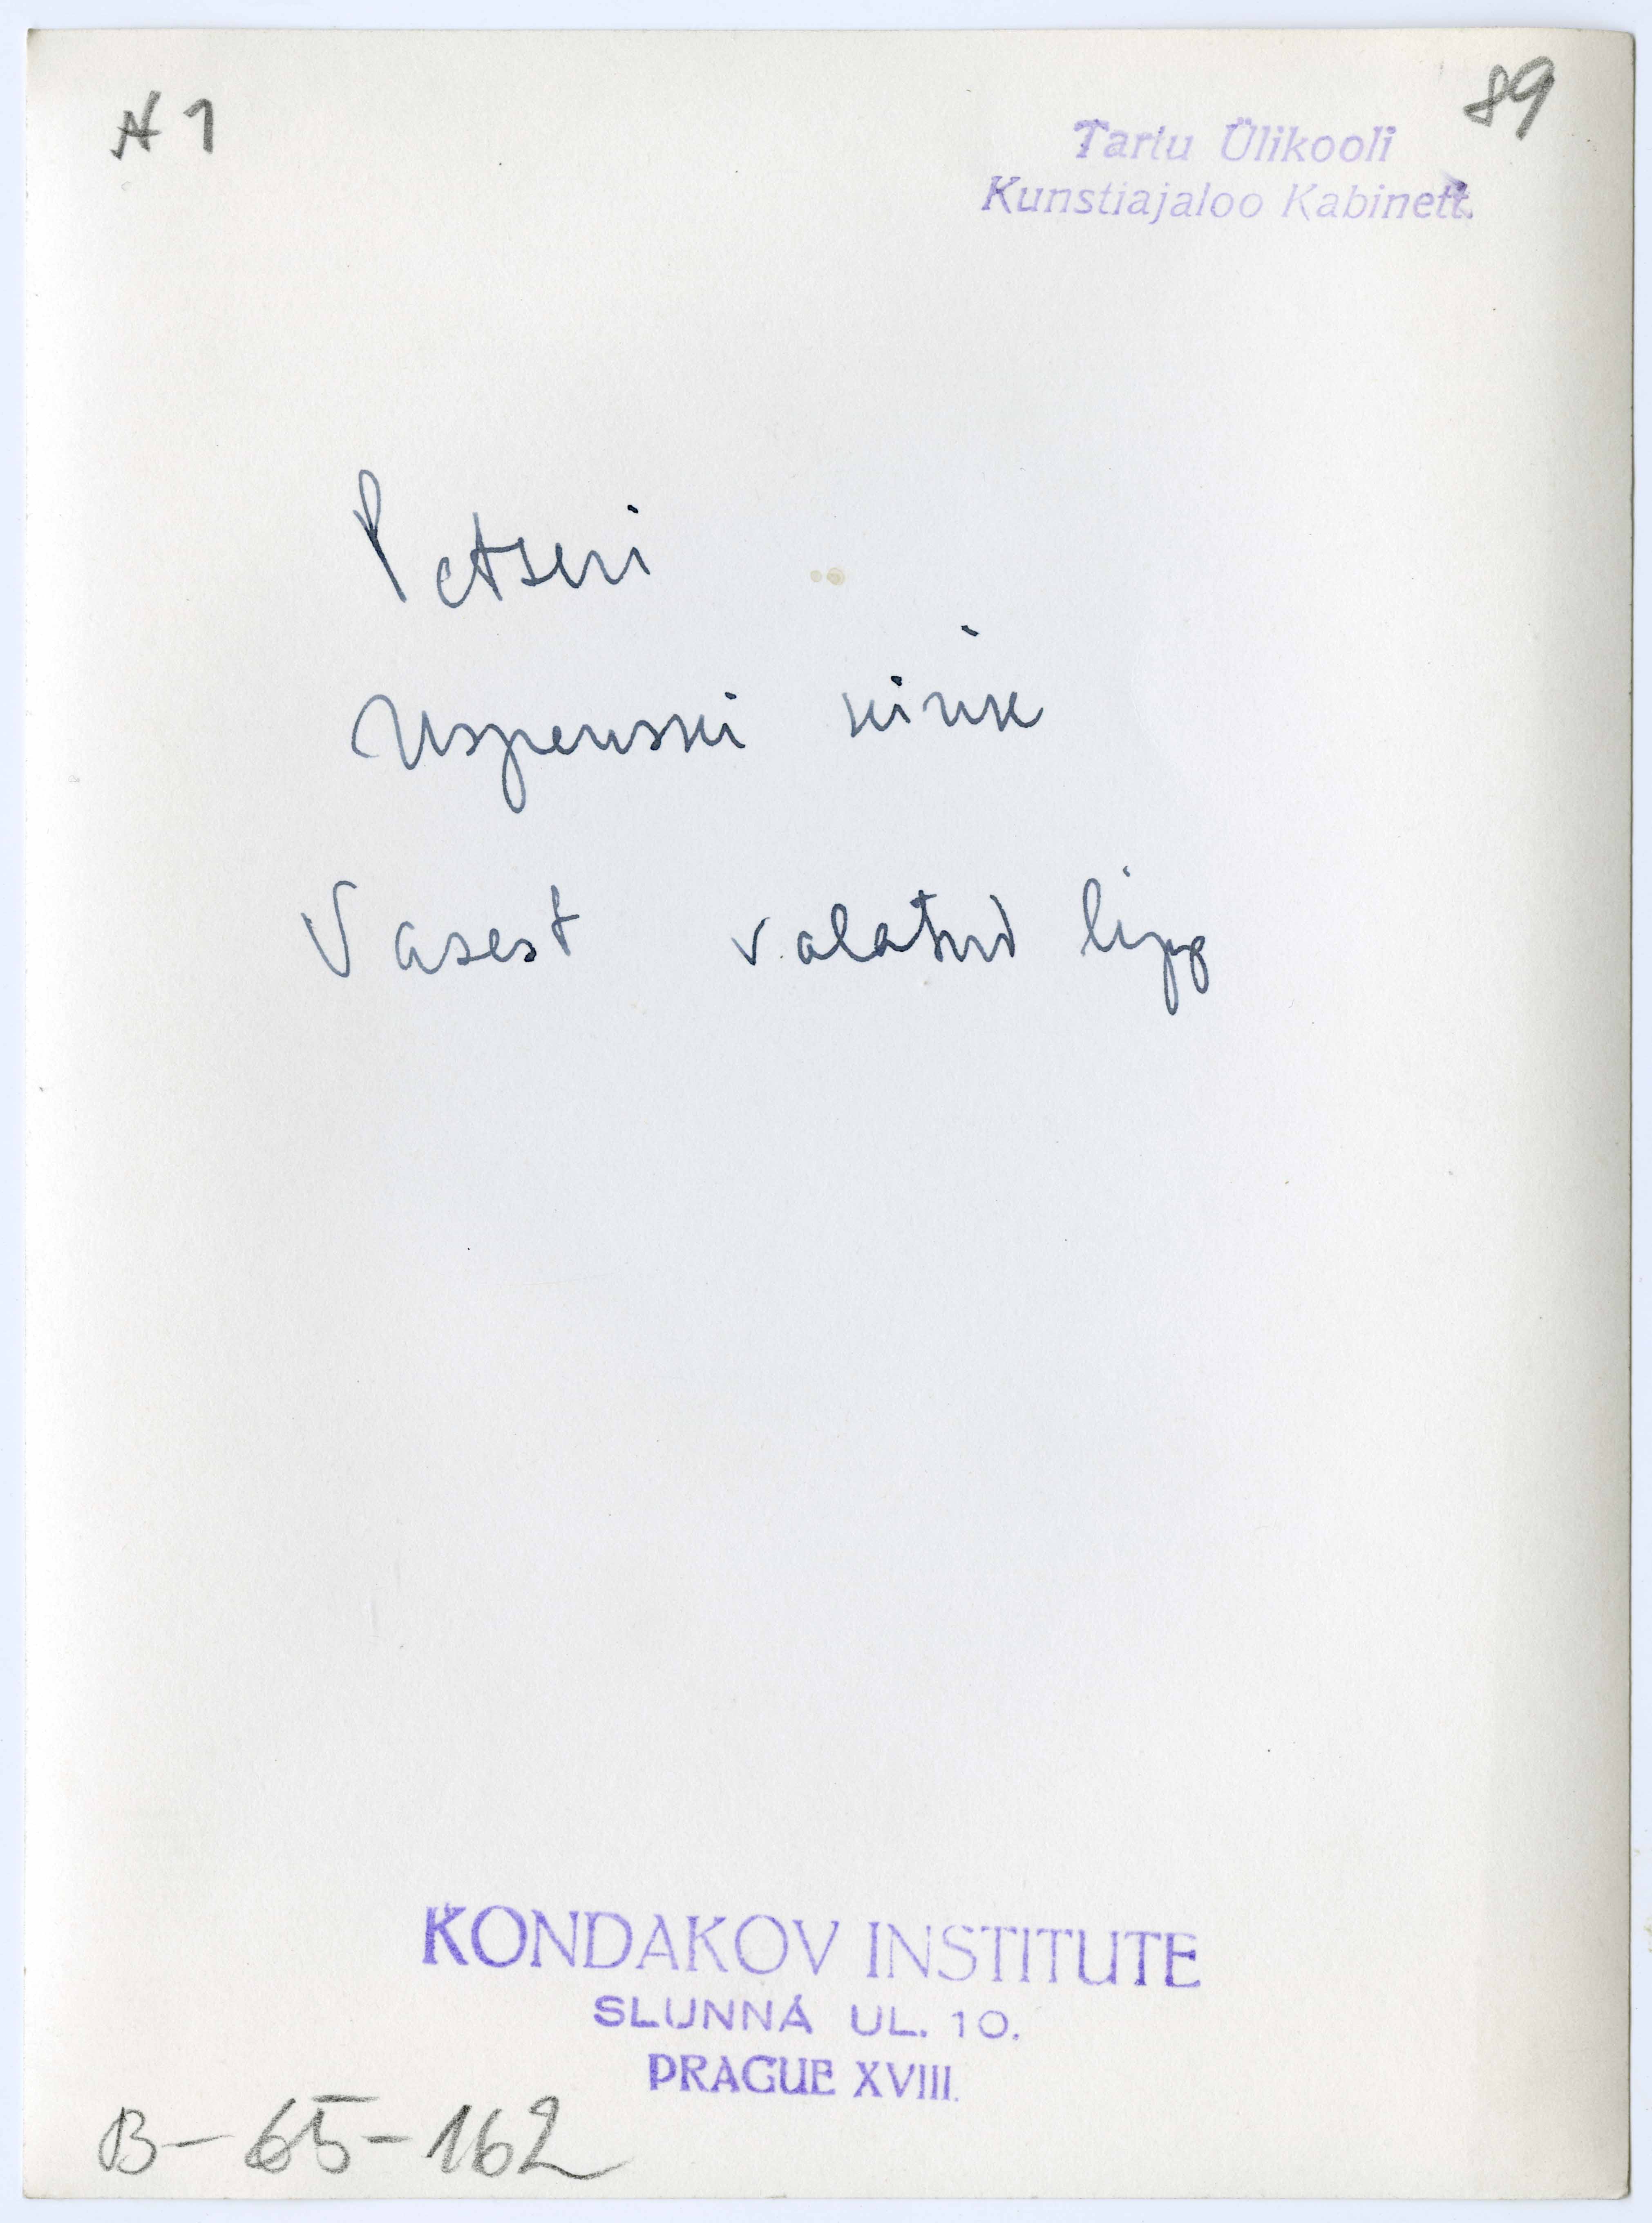 A 1
89
Tartu Ülikooli
Kunstiajaloo Kabinett.
Petseri
Uspenski kirik
Vasest valatud lipp
KONDAKOV INSTITUTE
SLUNNÁ UL. 10.
PRAGUE XVIII.
B-65-162